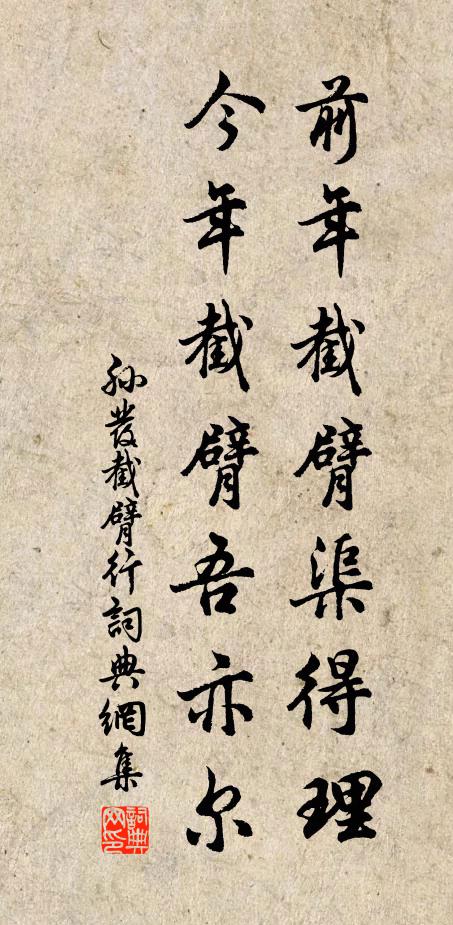 前年截臂渠得理
今年截臂吾亦尔
孙發截臂行詞典網集
詞典网印